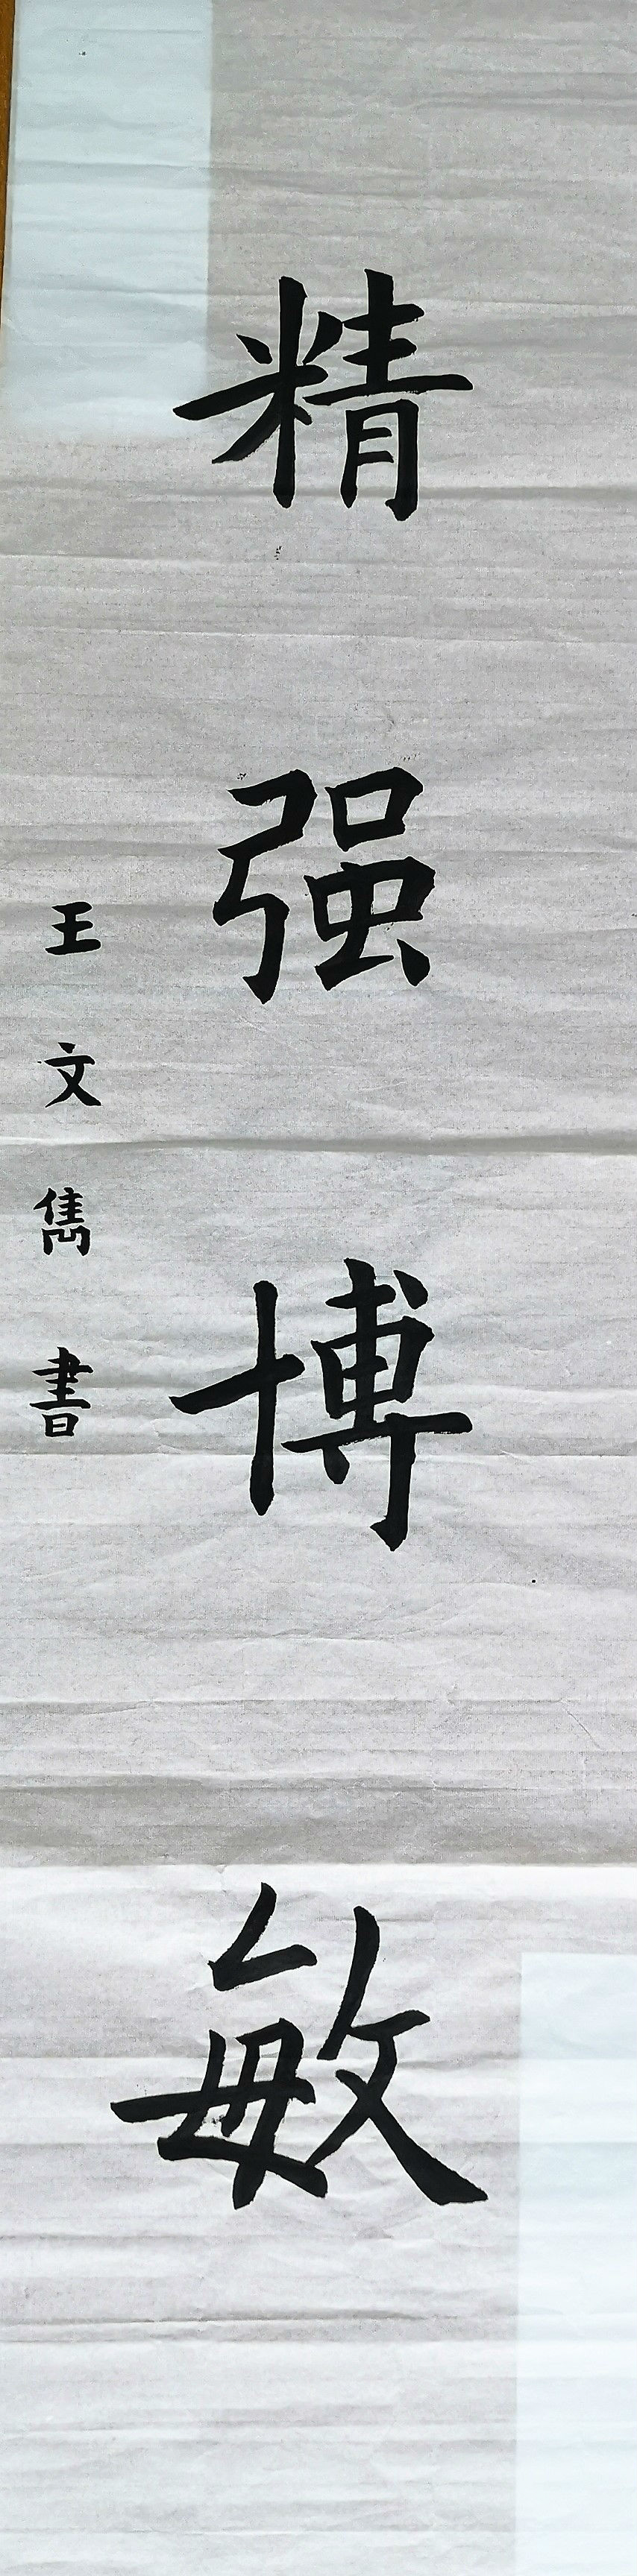 精强博敏
王文雋書